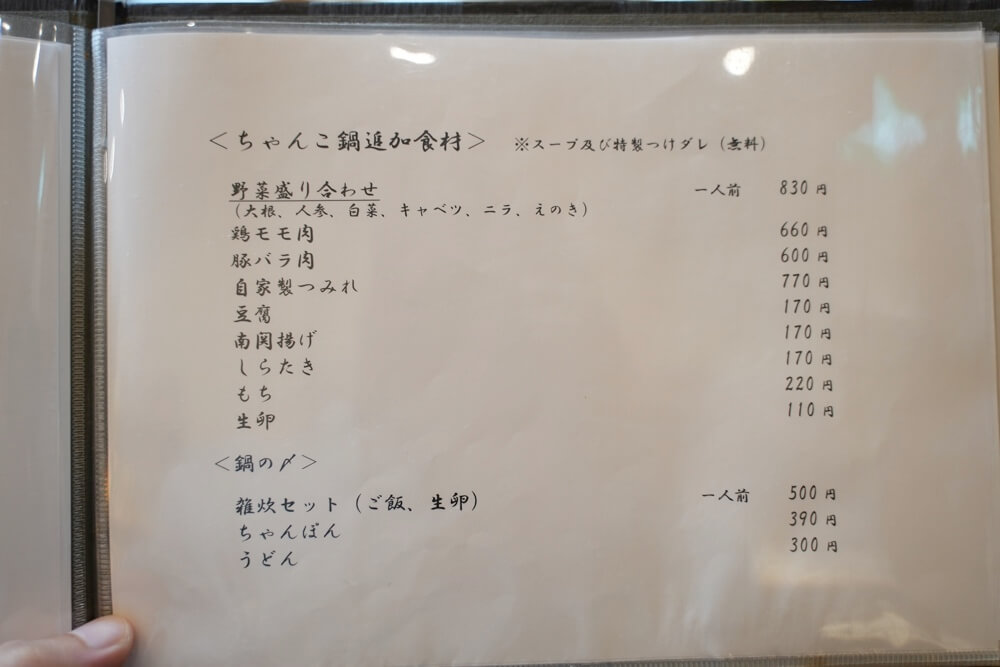 ＜ちゃんこ鍋追加食材＞ ※スープ及び特製つけダレ（無料）
野菜盛り合わせ 一人前 830円
（大根、人参、白菜、キャベツ、ニラ、えのき）
鶏モモ肉 660円
豚バラ肉 600円
自家製つみれ 770円
豆腐 170円
南関揚げ 170円
しらたき 170円
もち 220円
生卵 110円
＜鍋の〆＞
雑炊セット（ご飯、生卵） 一人前 500円
ちゃんぽん 390円
うどん 300円